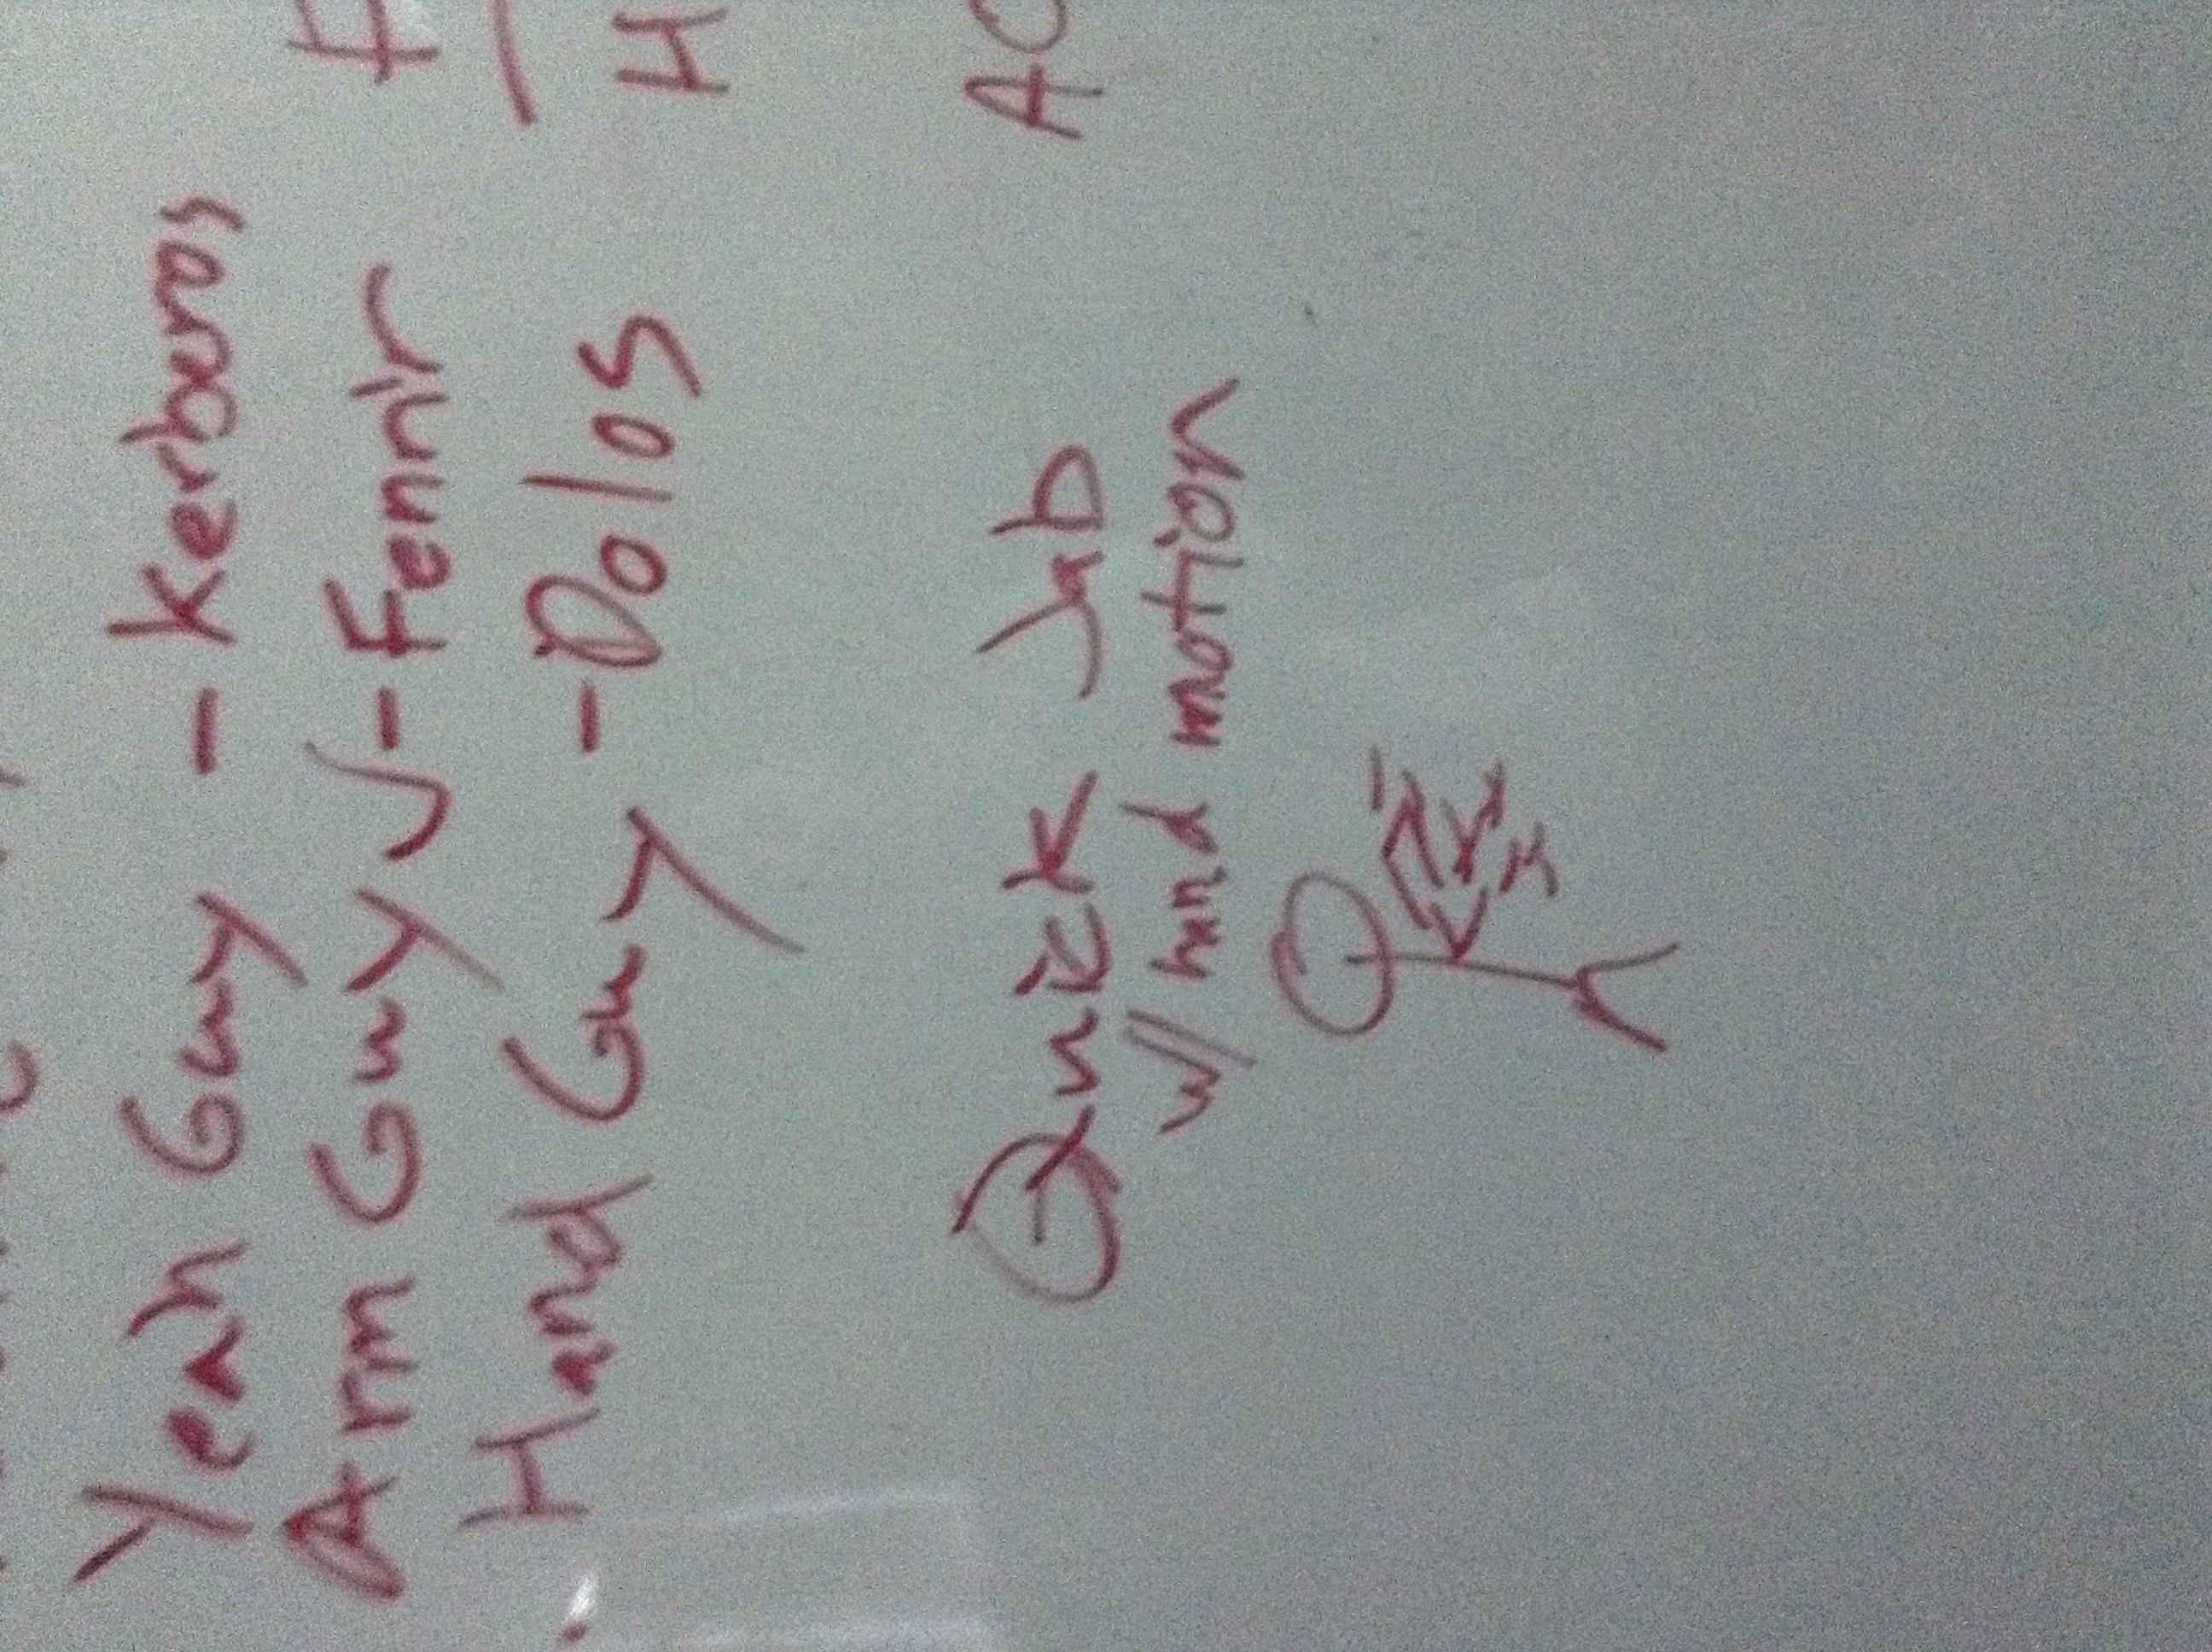 Yeah Guy - Kerberos
Arm Guy √ - Fenrir
Hand Guy - Dolos
Quick Jab
w/ hand motion